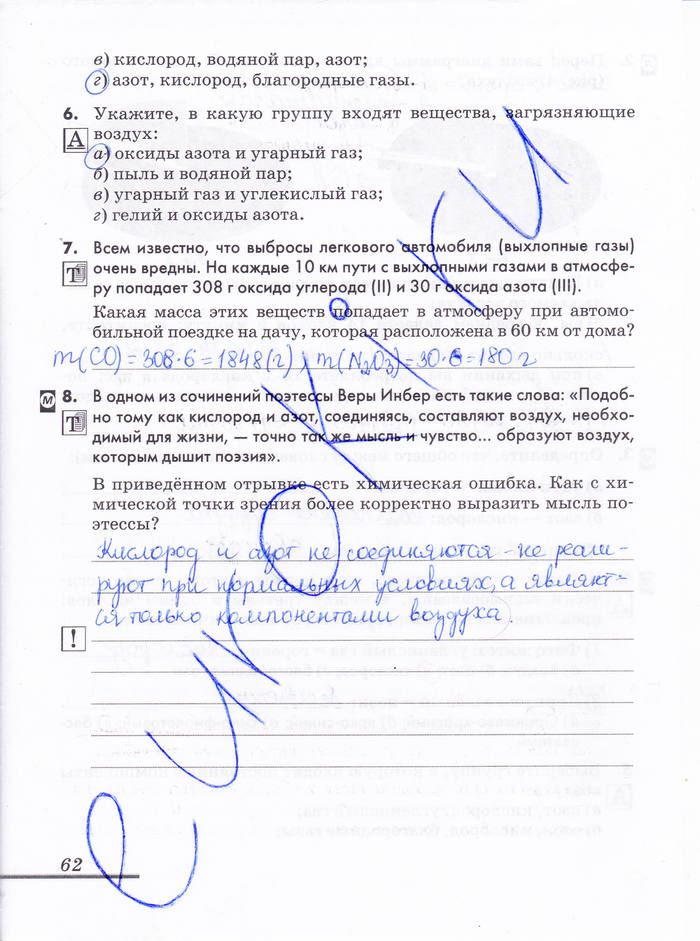 в) кислород, водяной пар, азот;
г) азот, кислород, благородные газы.
6. Укажите, в какую группу входят вещества, загрязняющие
А воздух:
а) оксиды азота и угарный газ;
б) пыль и водяной пар;
в) угарный газ и углекислый газ;
г) гелий и оксиды азота.
7. Всем известно, что выбросы легкового автомобиля (выхлопные газы)
Т очень вредны. На каждые 10 км пути с выхлопными газами в атмосфе-
ру попадает 308 г оксида углерода (II) и 30 г оксида азота (III).
Какая масса этих веществ попадает в атмосферу при автомо-
бильной поездке на дачу, которая расположена в 60 км от дома?
m(CO) = 308·6 = 1848(г), m(N2O3) = 30·6 = 180 г
М 8. В одном из сочинений поэтессы Веры Инбер есть такие слова: «Подоб-
Т но тому как кислород и азот, соединяясь, составляют воздух, необхо-
димый для жизни, — точно так же мысль и чувство... образуют воздух,
которым дышит поэзия».
В приведённом отрывке есть химическая ошибка. Как с хи-
мической точки зрения более корректно выразить мысль по-
этессы?
Кислород и азот не соединяются - не реаги-
руют при нормальных условиях, а являют-
ся только компонентами воздуха.
!
62